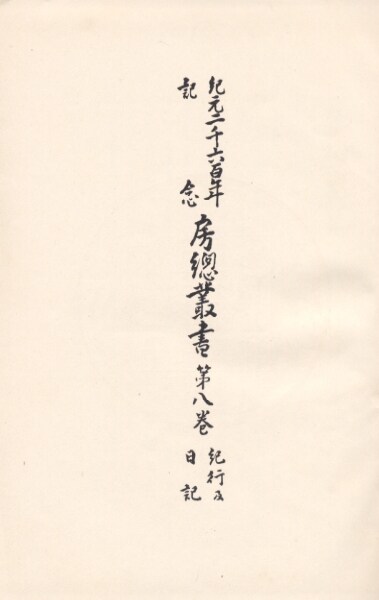 紀元二千六百年
記念
房總叢書 第八巻
紀行及
日記